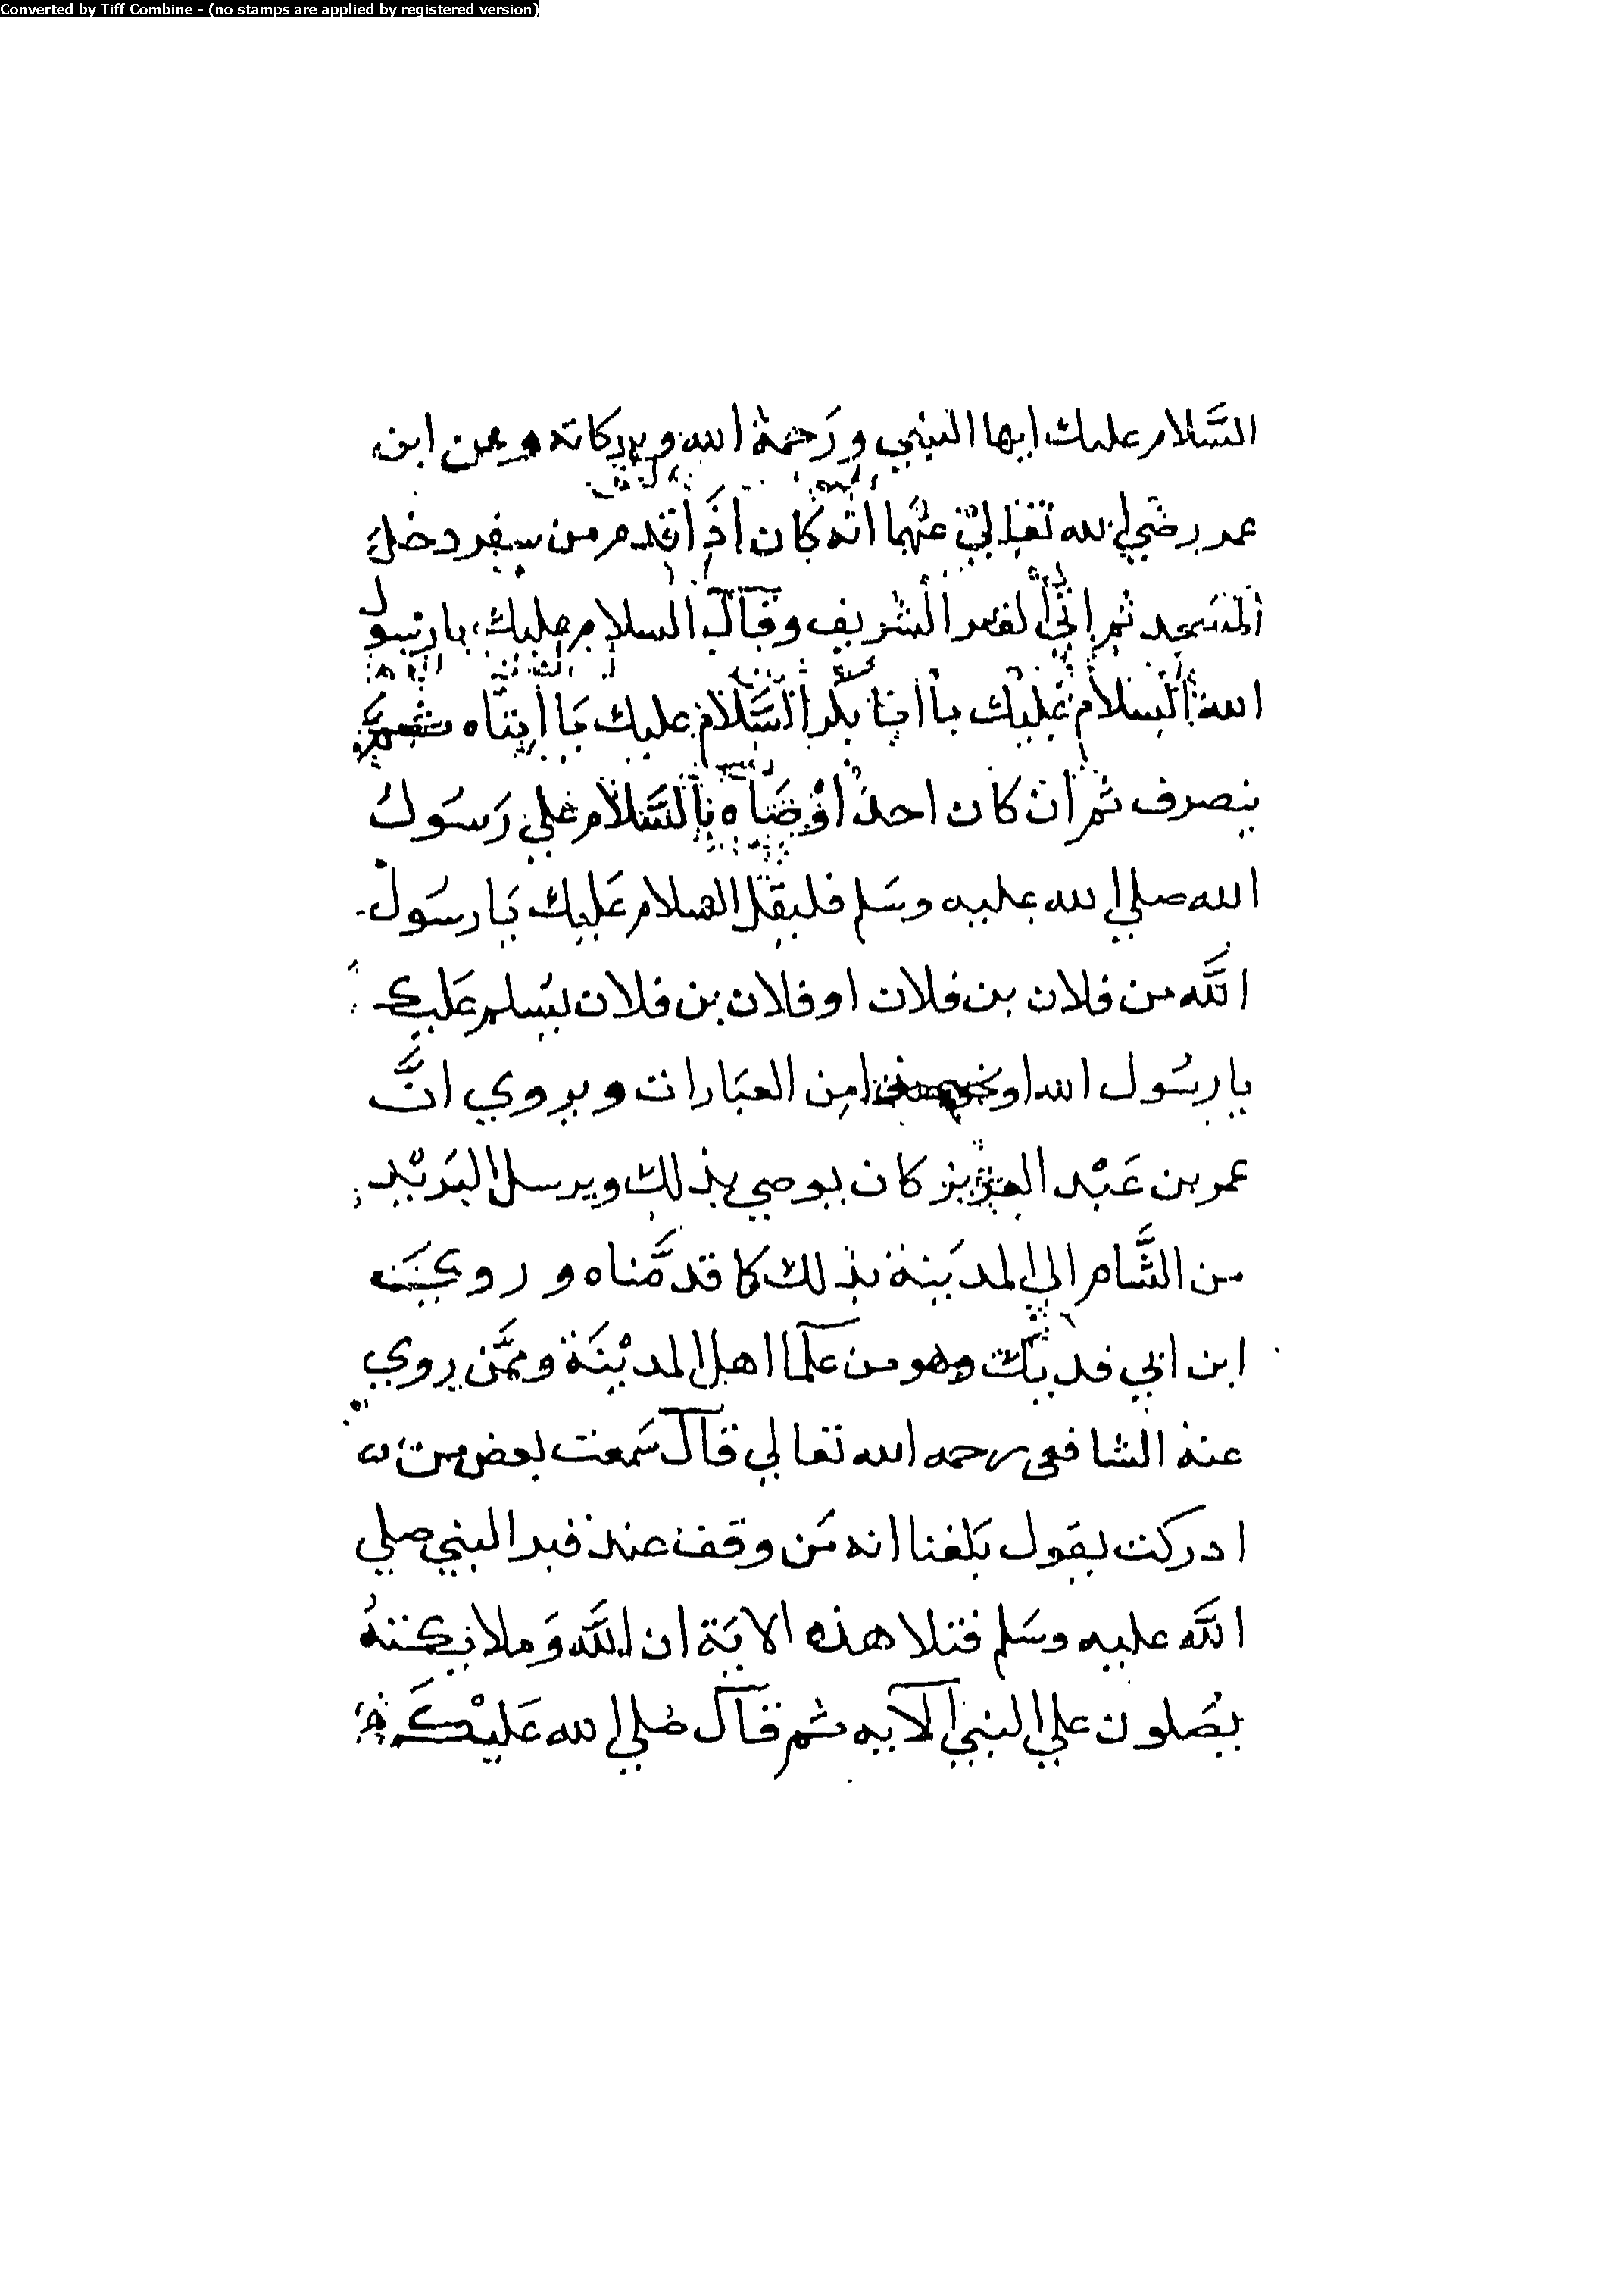 Converted by Tiff Combine - (no stamps are applied by registered version)
السَّلام عليك ايها النبي ورَحمة الله وبركاته وعن ابن
عمر رضي الله تعالي عنهُما انه كان اذَا قدم من سفر دخل
المسَجد ثم اتي القبر الشريف وقال السلام عليك يا رسول
الله السلام عَليك يا ابا بكر السَّلام عليك يَا ابتاه ثم
ينصرف ثم ان كان احدٌ اوْصَاه بالسَّلام علي رَسوُل
الله صلي الله عليه وسَلم فليقل السلام عَليك يَا رسُول
اللَّه من فلان بن فلان او فلان بن فلان يسُلم عَليك
يا رسُول الله او من العبَارات ويروي انَّ
عمر بن عَبْد العزيز كان يوصي بذلك ويرسل البَريْد
من الشَّام الي المديَنة بذلك كما قدمَّناه وروي عَن
ابن ابي فديك وهو من علما اهل المديْنَة وممَّن يروي
عنه الشافعي رحمه الله تعالي قال سَمعت بعض من
ادركت يقول بَلغنا انه مَن وقف عند قبر النبي صلي
اللَّه عليه وسَلم فتلا هذه الايَة ان اللَّه وَملائكتهُ
يصُلون علي النبي الايه ثم قال صَلي الله عَليْك